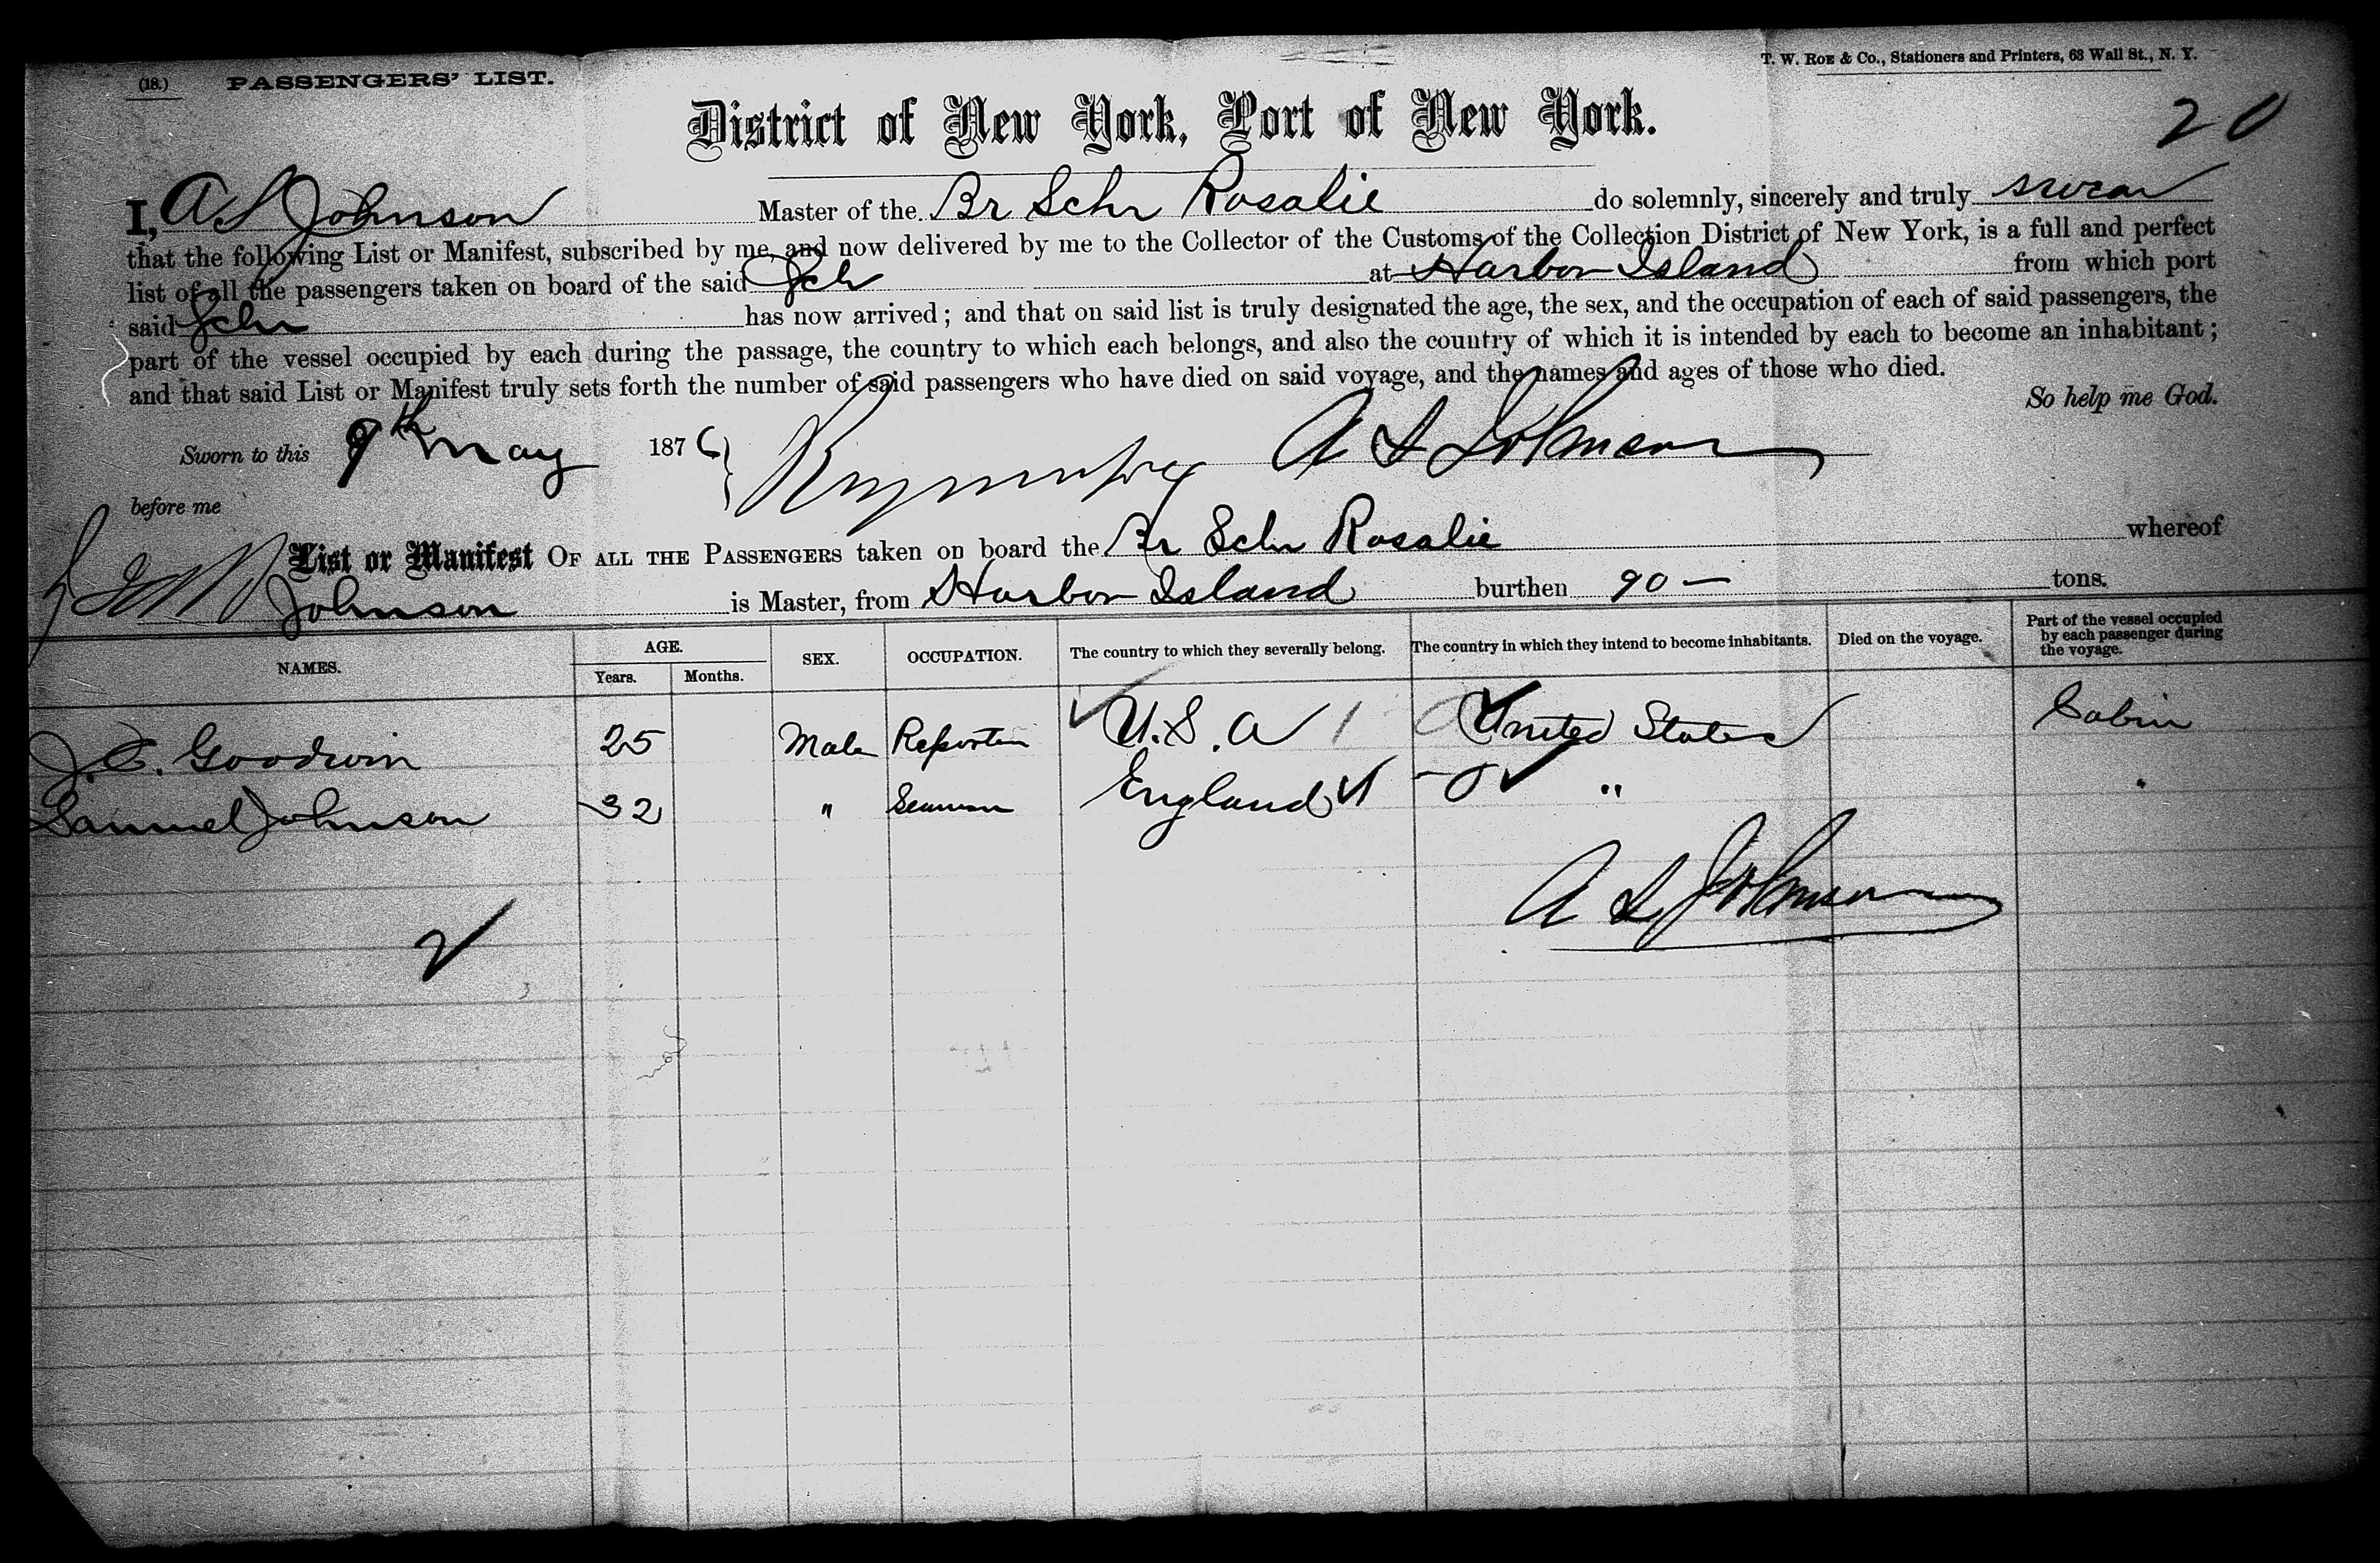 (18.) PASSENGERS' LIST.
T. W. ROE & Co., Stationers and Printers, 63 Wall St., N. Y.
20
District of New York, Port of New York.
I, A S Johnson Master of the Br Schr Rosalie do solemnly, sincerely and truly swear
that the following List or Manifest, subscribed by me, and now delivered by me to the Collector of the Customs of the Collection District of New York, is a full and perfect
list of all the passengers taken on board of the said Sch at Harbor Island from which port
said Schr has now arrived; and that on said list is truly designated the age, the sex, and the occupation of each of said passengers, the
part of the vessel occupied by each during the passage, the country to which each belongs, and also the country of which it is intended by each to become an inhabitant;
and that said List or Manifest truly sets forth the number of said passengers who have died on said voyage, and the names and ages of those who died.
So help me God.
Sworn to this 9th May 1876 A S Johnson
before me
List or Manifest OF ALL THE PASSENGERS taken on board the Br Schr Rosalie whereof
Johnson is Master, from Harbor Island burthen 90 — tons.
NAMES. AGE. Years. Months. SEX. OCCUPATION. The country to which they severally belong. The country in which they intend to become inhabitants. Died on the voyage. Part of the vessel occupied by each passenger during the voyage.
J. C. Goodwin 25 Male Reporter U.S.A 1 United States Cabin
Samuel Johnson 32 " Seaman England " "
A S Johnson